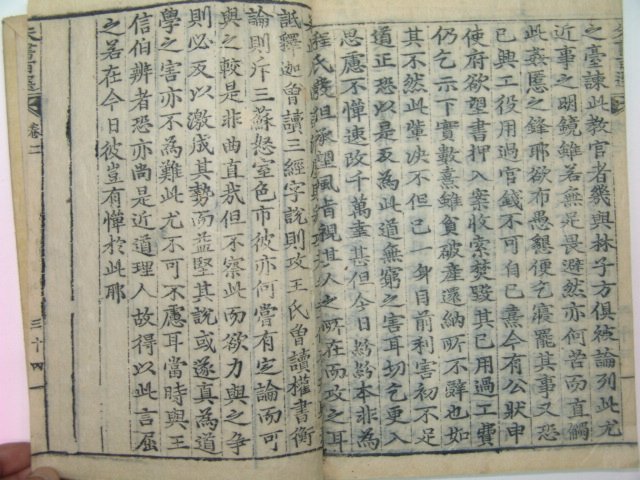 之臺諫此教官者幾與林子方俱被論列此尤
近事之明鏡雖若無足畏避然亦何苦而直觸
此姦慝之鋒耶欲布愚懇便乞寢罷其事又恐
已興工役用過官錢不可自已熹今有公狀申
使府欲望書押入案收索焚毀其已用過工費
仍乞示下實數熹雖貧破產還納所不辭也如
其不然此輩決不但已一身目前利害初不足
道正恐以是反為此道無窮之害耳切乞更入
思慮不憚速改千萬幸甚但今日紛紛本非為
程氏發但承望風旨視其人之所在而攻之耳
詆釋迦曾讀三經字說則攻王氏曾讀權書衡
論則斥三蘇怒室色市彼亦何嘗有定論而可
與之較是非曲直哉但不察此而欲力與之爭
則必反以激成其勢而益堅其說或遂真為道
學之害亦不為難此尤不可不慮耳當時與王
信伯辨者恐亦尚是近道理人故得以此言屈
之若在今日彼豈有憚於此耶
朱書百選
卷二
三十四